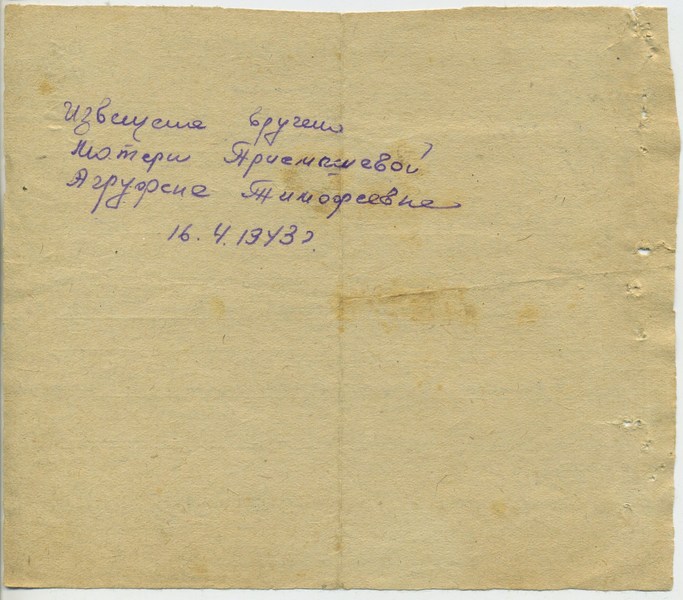 Извещения вручено
Матери Присмашевой
Агруфене Тимофеевне
16.4.1943г.